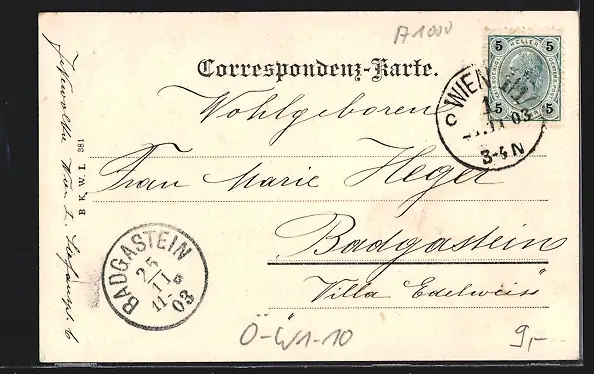 A 1000
Correspondenz-Karte.
5 HELLER 5
5 5
WIEN
1
11 03
3-4 N
Wohlgeboren
Frau Marie Heger
Badgastein
Villa Edelweiss
BADGASTEIN
25
11
11-
03
B K. W. I. 381
Wien I.
Ö-W1-10
9,-